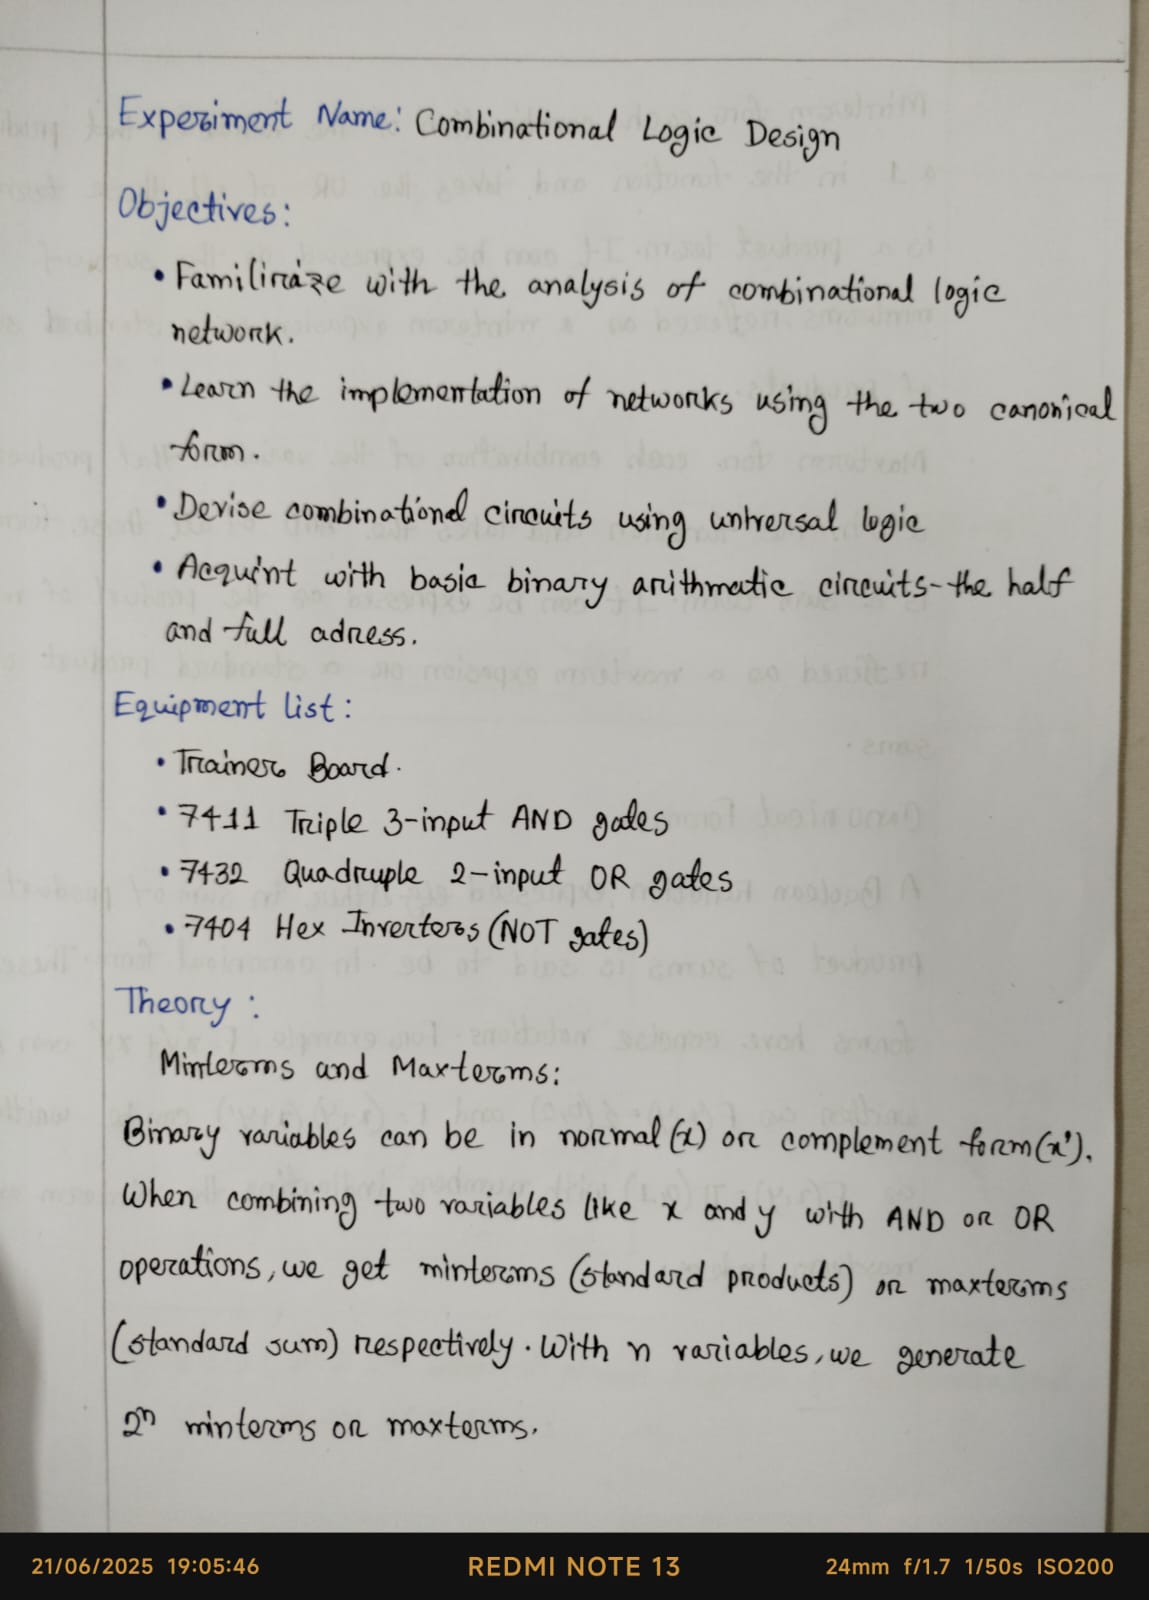 Experiment Name: Combinational Logic Design
Objectives:
• Familiraize with the analysis of combinational logic
network.
• Learn the implementation of networks using the two canonical
form.
• Devise combinational circuits using unversal logic
• Acquint with basic binary arithmetic circuits-the half
and full adress.
Equipment list:
• Trainer Board.
• 7411 Triple 3-input AND gates
• 7432 Quadruple 2-input OR gates
• 7404 Hex Inverters (NOT gates)
Theory:
Minterms and Maxterms:
Binary variables can be in normal (x) or complement form (x').
When combining two variables like x and y with AND or OR
operations, we get minterms (standard products) or maxterms
(standard sum) respectively. With n variables, we generate
2ⁿ minterms or maxterms.
21/06/2025 19:05:46 REDMI NOTE 13 24mm f/1.7 1/50s ISO200